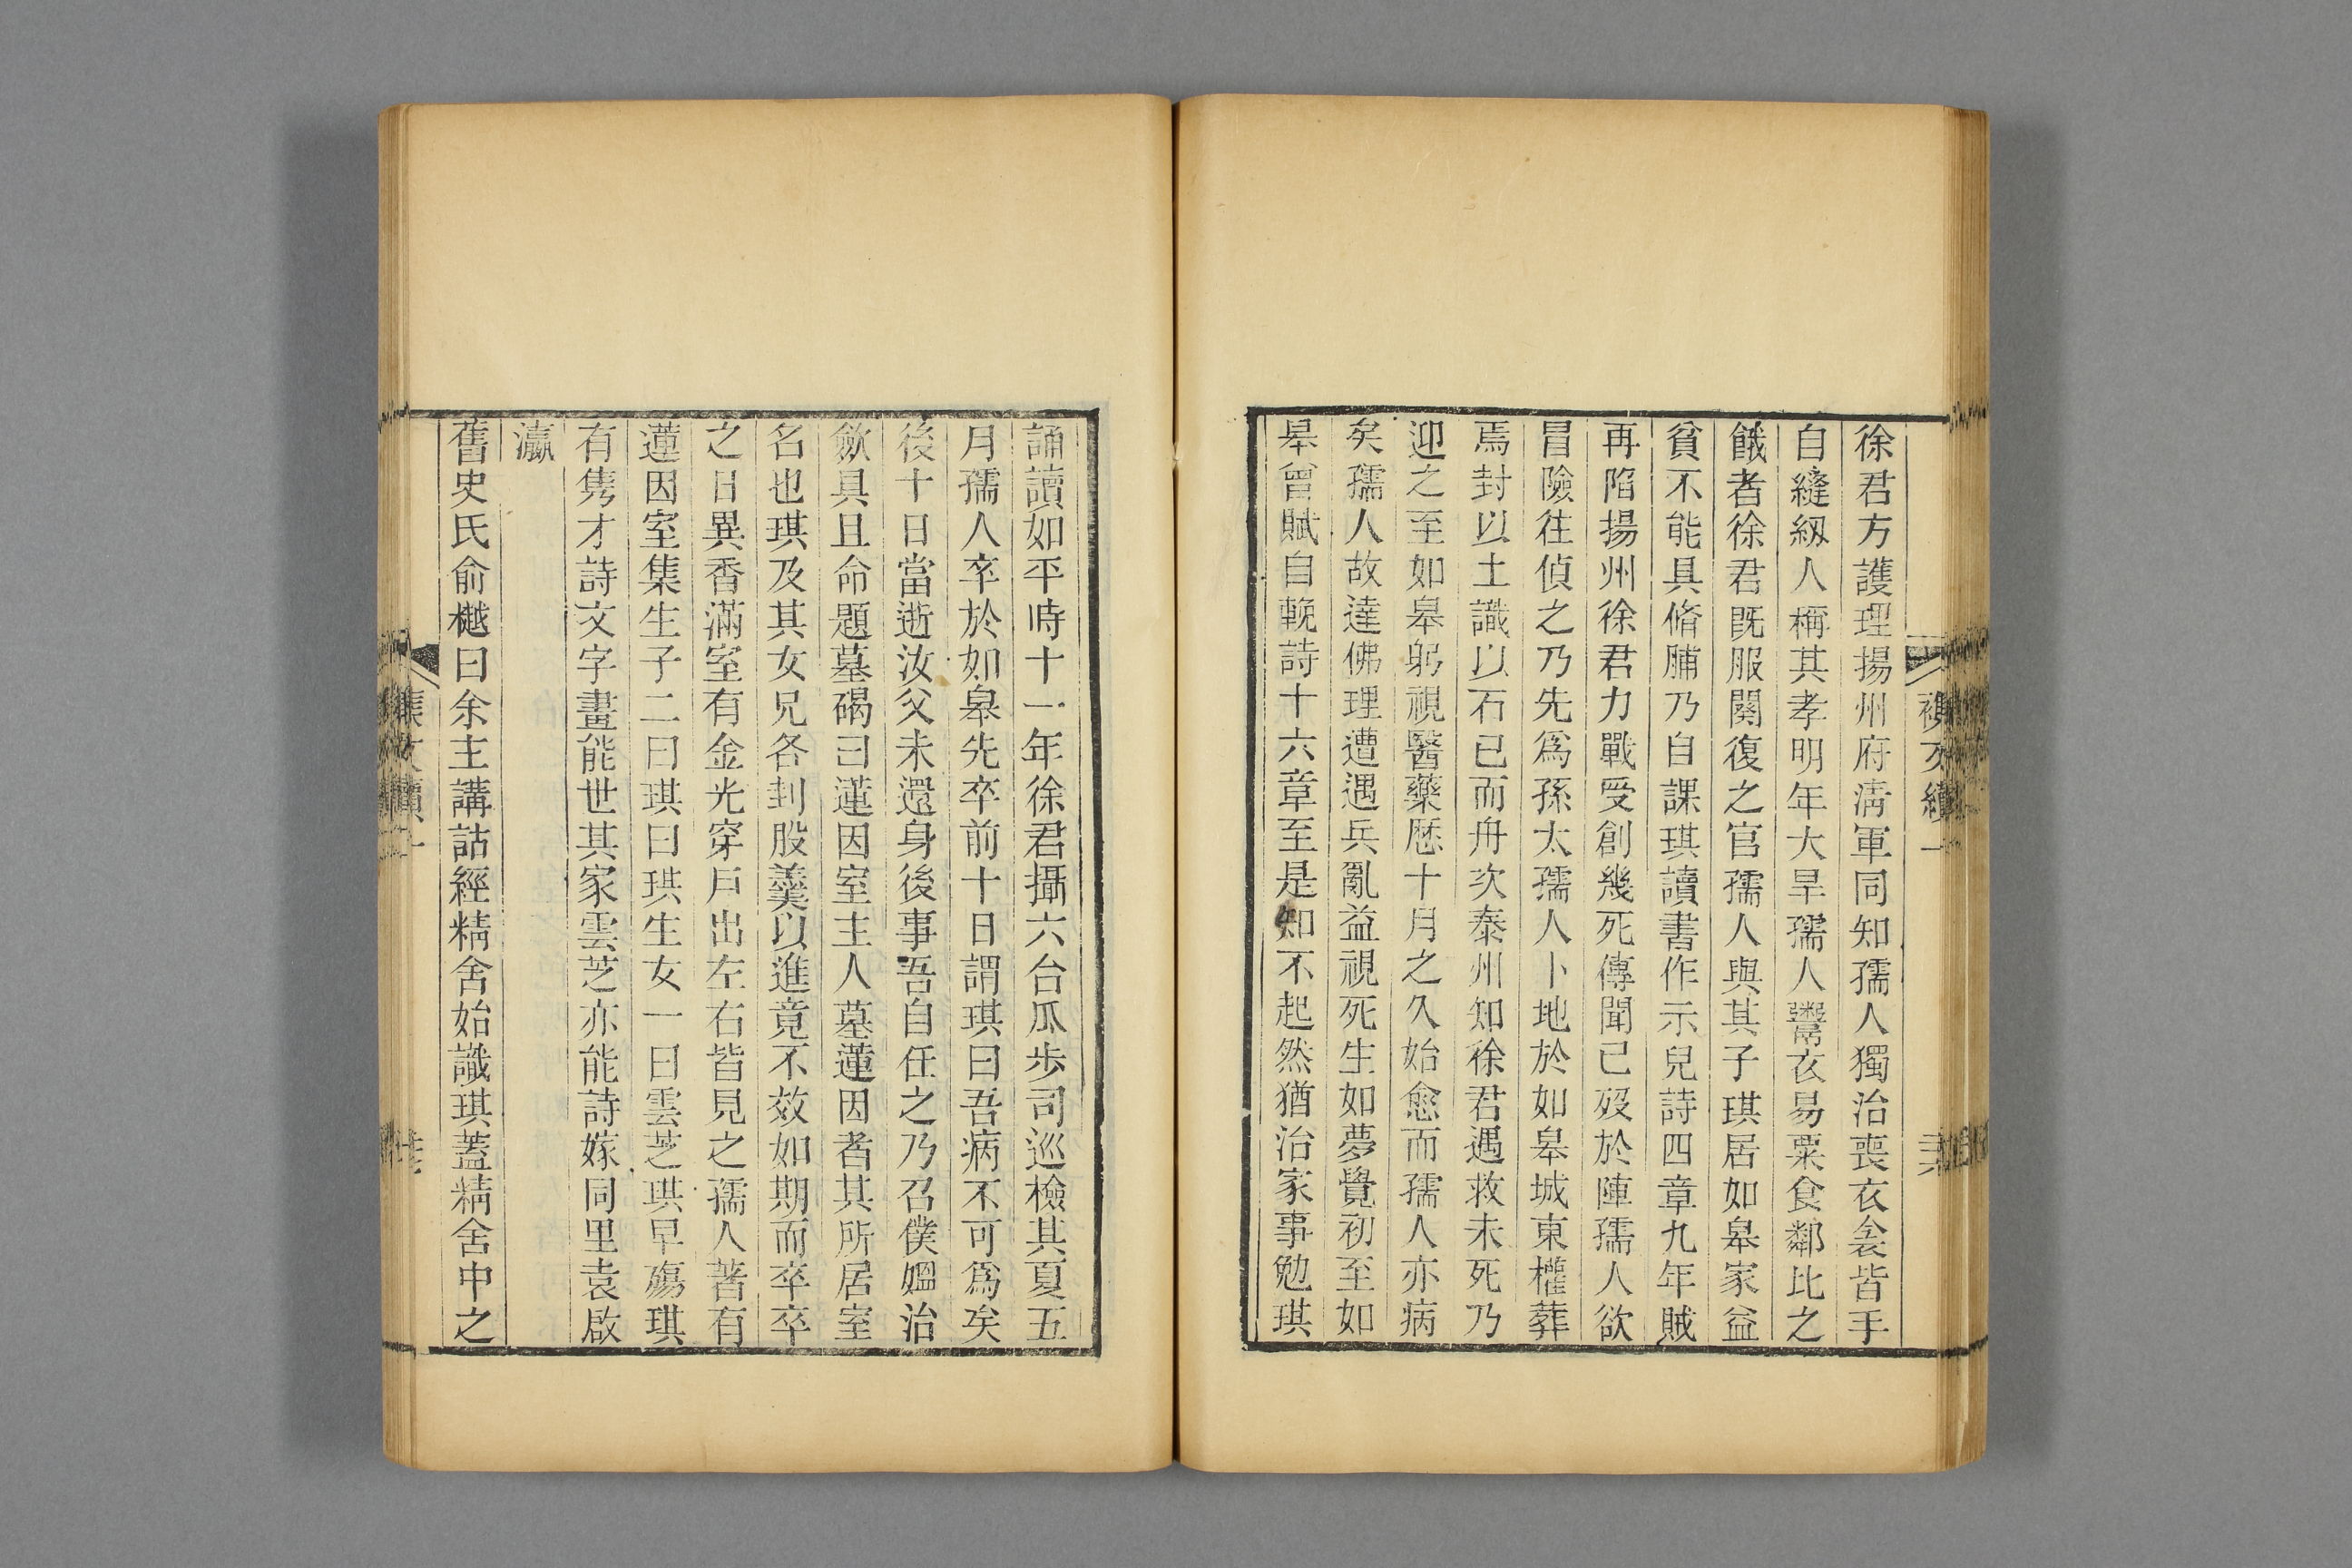 徐君方護理揚州府淸軍同知孺人獨治喪衣衾皆手
自縫紉人稱其孝明年大旱孺人鬻衣易粟食鄰比之
餓者徐君旣服闋復之官孺人與其子琪居如皋家益
貧不能具脩脯乃自課琪讀書作示兒詩四章九年賊
再陷揚州徐君力戰受創幾死傳聞已歿於陣孺人欲
冒險往偵之乃先爲孫太孺人卜地於如皋城東權葬
焉封以土識以石已而舟次泰州知徐君遇救未死乃
迎之至如皋躬視醫藥厯十月之久始愈而孺人亦病
矣孺人故達佛理遭遇兵亂益視死生如夢覺初至如
皋曾賦自輓詩十六章至是知不起然猶治家事勉琪
誦讀如平時十一年徐君攝六台瓜步司巡檢其夏五
月孺人卒於如皋先卒前十日謂琪曰吾病不可爲矣
後十日當逝汝父未還身後事吾自任之乃召僕媼治
斂具且命題墓碣曰蓮因室主人墓蓮因者其所居室
名也琪及其女兄各刲股羹以進竟不效如期而卒卒
之日異香滿室有金光穿戶出左右皆見之孺人著有
蓮因室集生子二曰琪曰珙生女一曰雲芝珙早殤琪
有雋才詩文字畫能世其家雲芝亦能詩嫁同里袁啟
瀛
舊史氏俞樾曰余主講詁經精舍始識琪蓋精舍中之